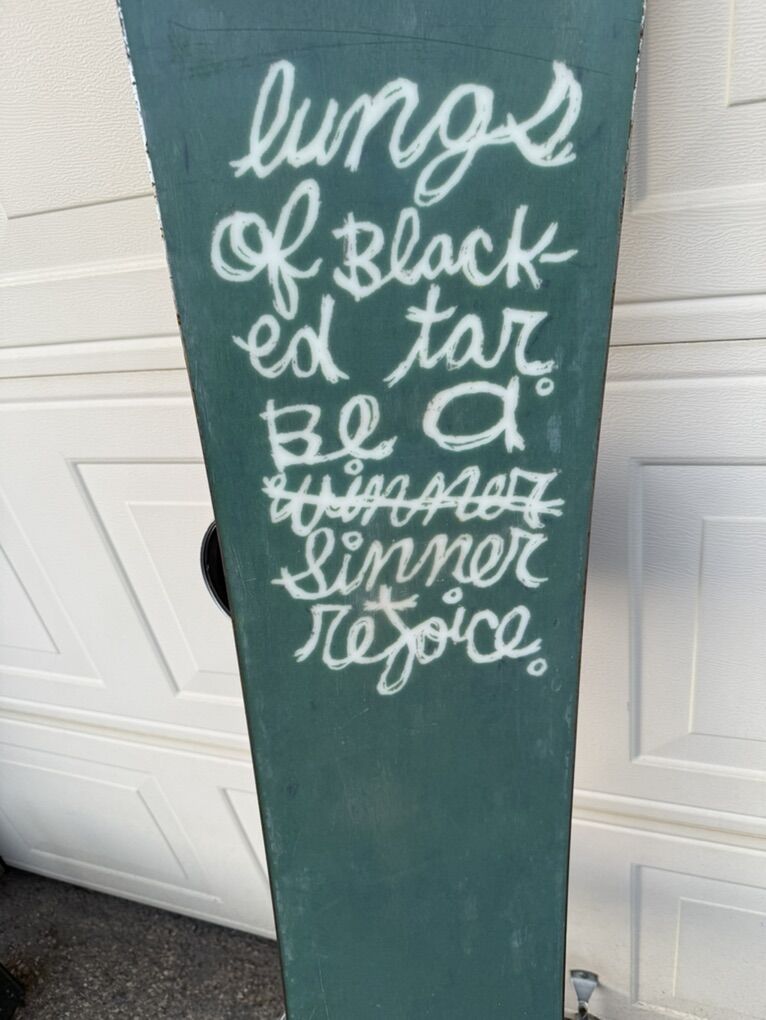 lungs
of Black-
ed tar.
Be a
winner
Sinner
rejoice.